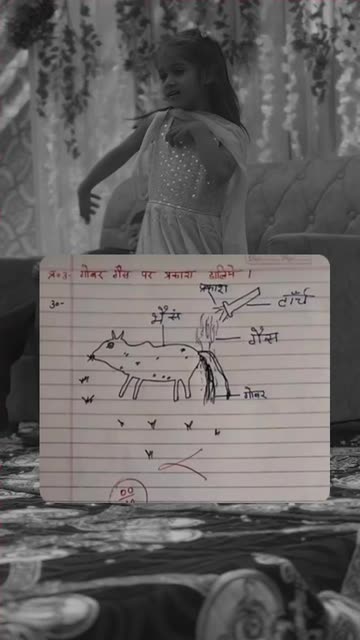 प्र०3- गोबर गैस पर प्रकाश डालिये ।
उ०-
प्रकाश
टॉर्च
भैंस
गैस
गोबर
00